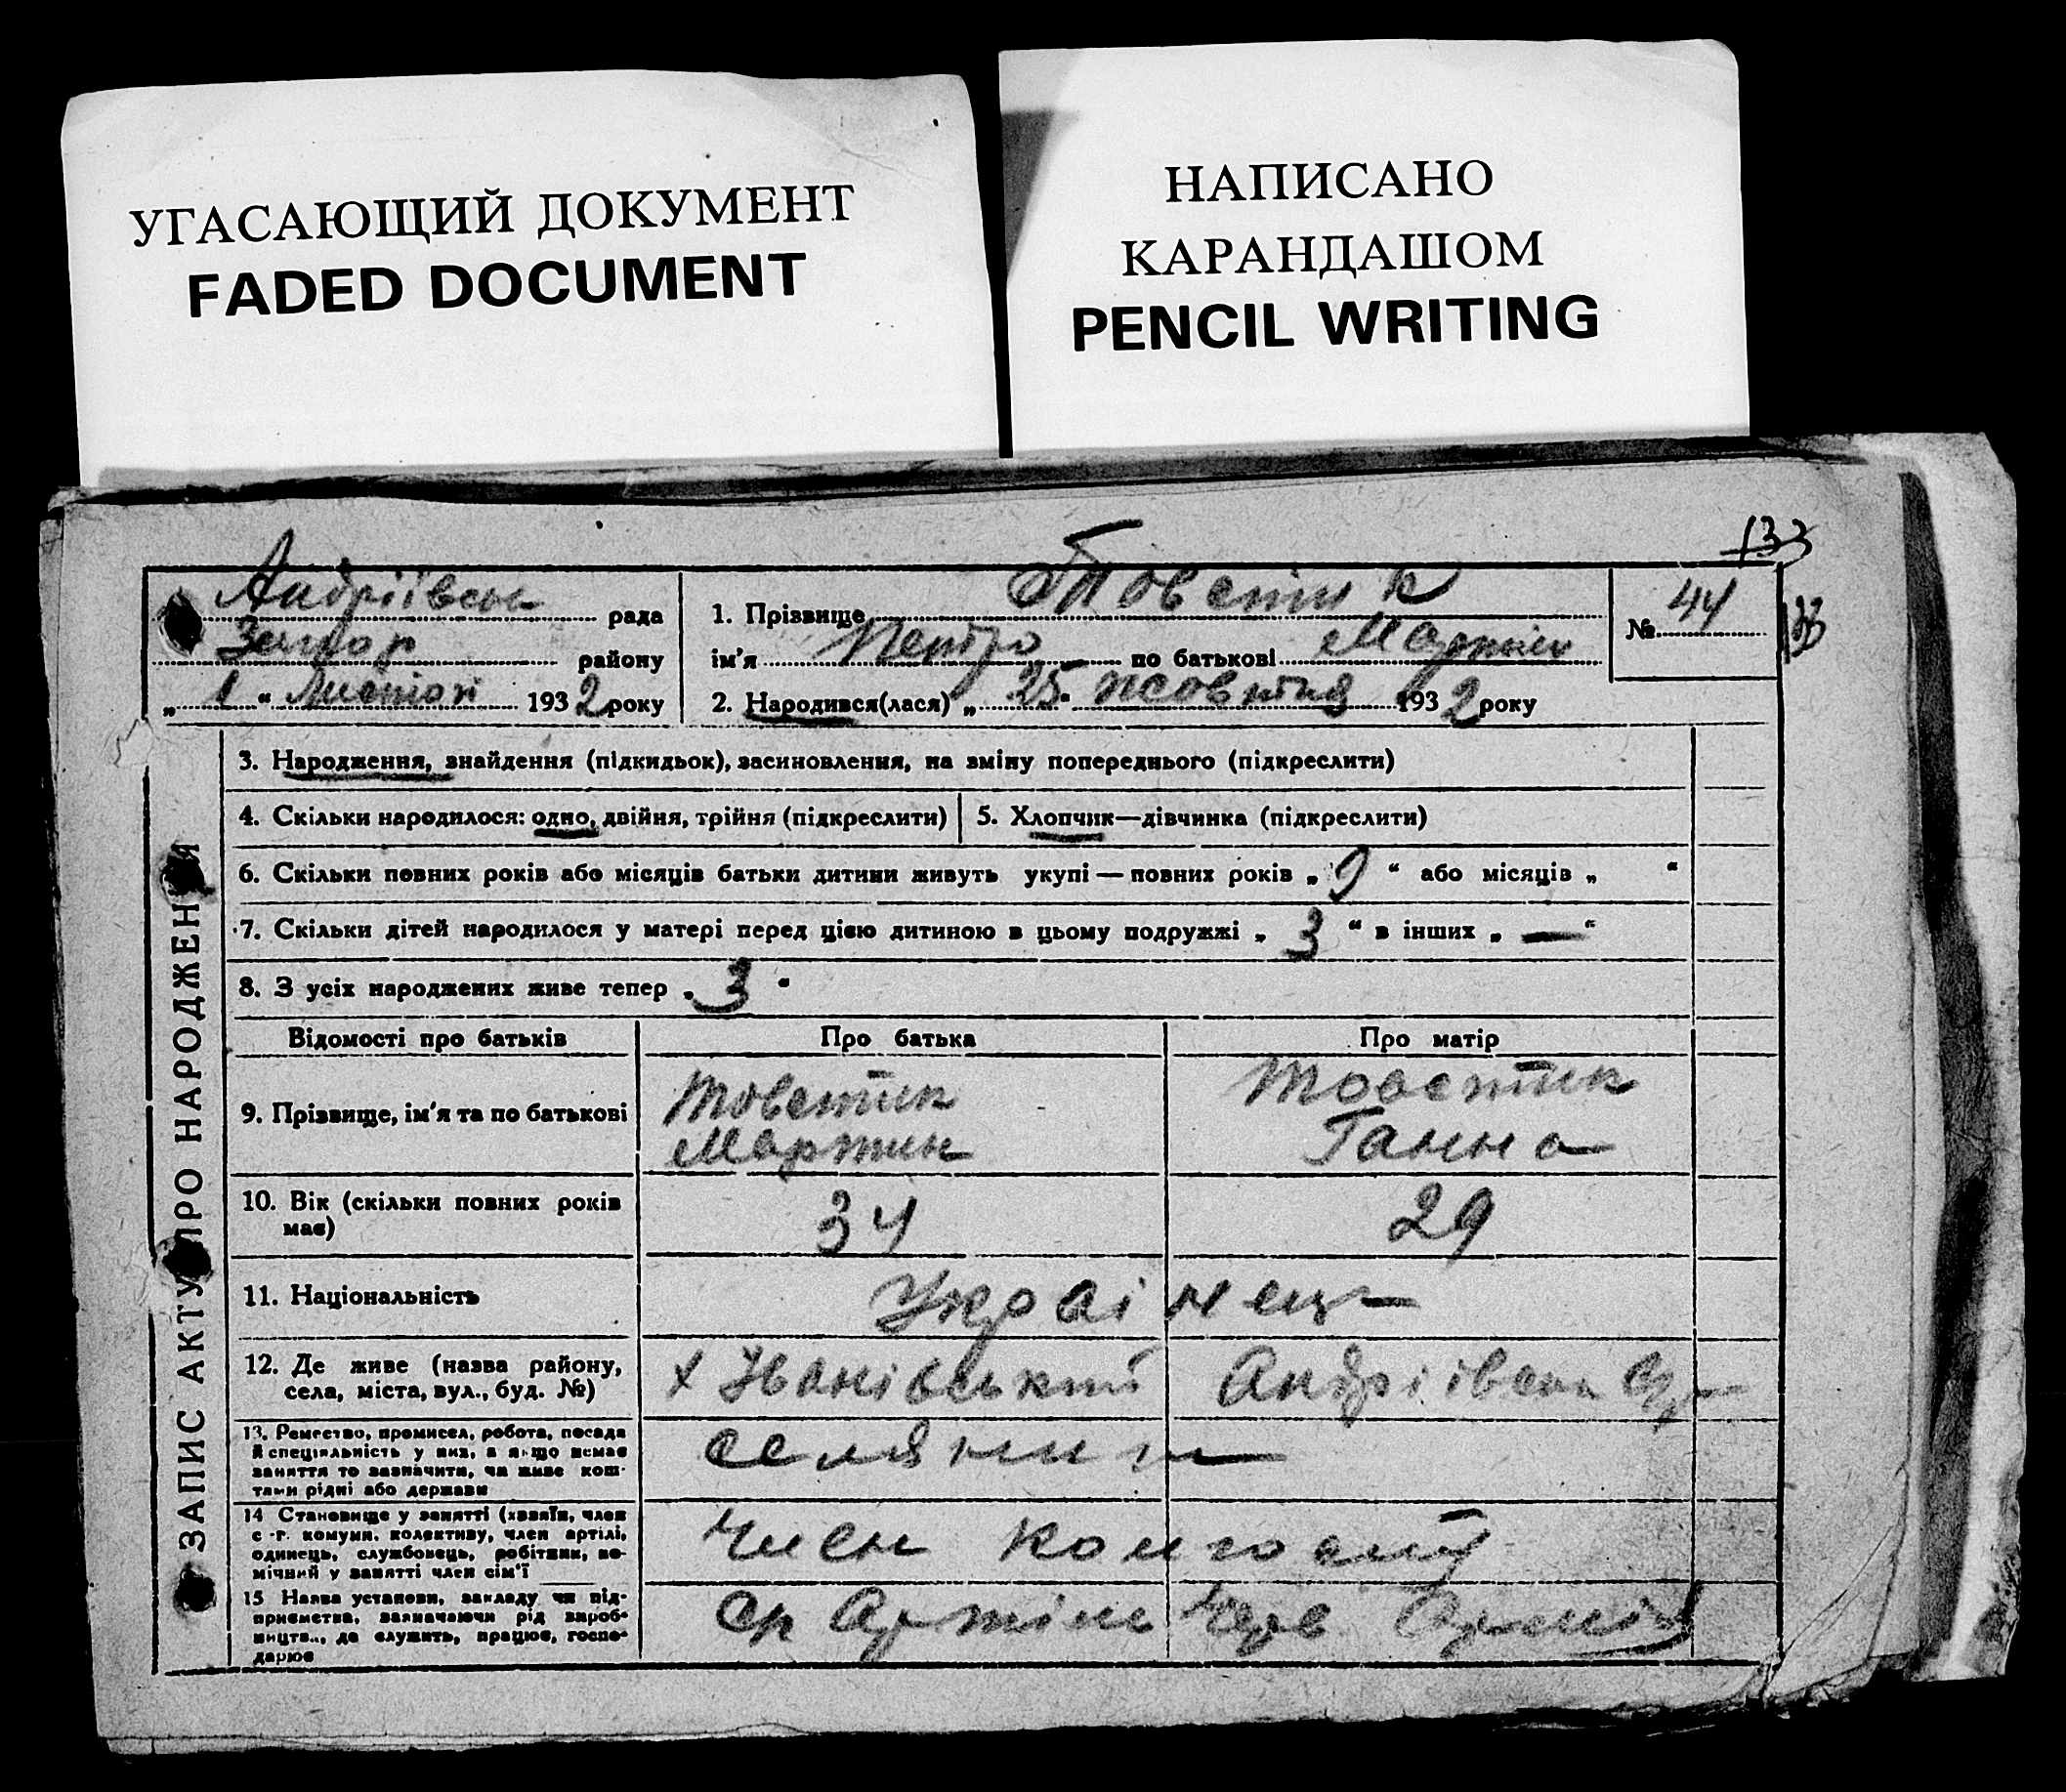 УГАСАЮЩИЙ ДОКУМЕНТ
FADED DOCUMENT
НАПИСАНО
КАРАНДАШОМ
PENCIL WRITING
133
133
Андріївськ рада
району
„ 1 “ Листоп 1932 року
1. Прізвище Товстик
ім'я Петро по батькові Мартин
2. Народився(лася) „ 25 “ жовтня 1932 року
№ 44
ЗАПИС АКТУ ПРО НАРОДЖЕННЯ
3. Народження, знайдення (підкидьок), засиновлення, на зміну попереднього (підкреслити)
4. Скільки народилося: одно, двійня, трійня (підкреслити)
5. Хлопчик—дівчинка (підкреслити)
6. Скільки повних років або місяців батьки дитини живуть укупі — повних років „ 9 “ або місяців „ “
7. Скільки дітей народилося у матері перед цією дитиною в цьому подружжі „ 3 “ в інших „ — “
8. З усіх народжених живе тепер „ 3 “
Відомості про батьків Про батька Про матір
9. Прізвище, ім'я та по батькові
Товстик
Мартин
Товстик
Ганна
10. Вік (скільки повних років
має)
34
29
11. Національність
Українец
12. Де живе (назва району,
села, міста, вул., буд. №)
х Іванівський Андріївськ
13. Ремество, промисел, робота, посада
й спеціяльність у них, а якщо немає
заняття то зазначити, чи живе кош-
тами рідні або держави
селянин
14 Становище у занятті (хазяїн, член
с.-г. комуни, колективу, член артілі,
одинець, службовець, робітник, по-
мічний у занятті член сім'ї
Член колгоспу
15 Назва установи, закладу чи під-
приємства, зазначаючи рід вироб-
ництва, де служить, працює, госпо-
дарює
Артіль Черв Армія